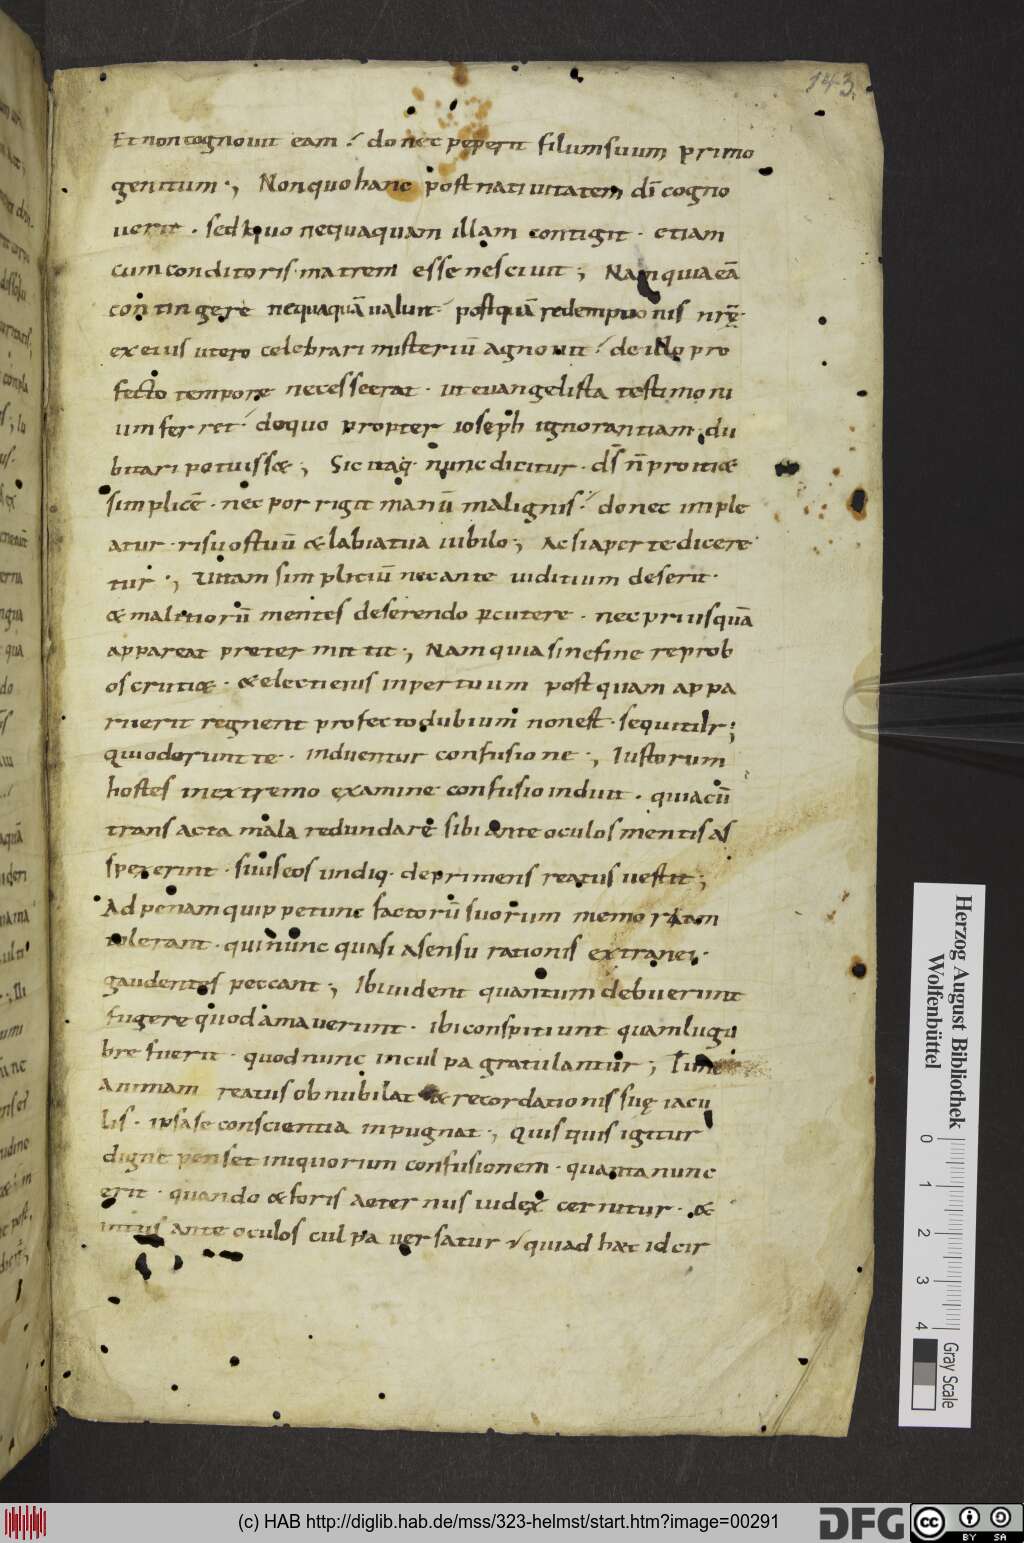 143.
Et non cognouit eam? donec peperit filium suum primo
genitum·, Non quo hanc post natiuitatem dni cogno
uerit · sed quo nequaquam illam contigit · etiam
cum conditoris matrem esse nesciuit ; Nam quia eā
contingere nequaquā ualuit · postquā redemptionis nrę·
ex eius utero celebrari misteriū agnouit? de illo pro
fecto tempore necesse erat · ut euangelista testimoni
um ferret · de quo propter ioseph ignorantiam du
bitari potuissæ ; Sic itaq· nunc dicitur · ds n̄ proitiæ
simplicē · nec porrigit manū malignis? donec imple
atur · risu os tuū & labia tua iubilo·, Ac si aperte dicere
tur·, Vitam simpliciū nec ante uiditium deserit·
& malitiorū mentes deserendo pcutere · nec prius quā
appareat preter mittit·, Nam quia sine fine reprob
os crutiæ · & electi eius in pertuum postquam appa
ruerit regnent profecto dubium non est · sequitur;
qui oderunt te · induentur confusione·, Iustorum
hostes in extremo examine confusio induit · quia cū
transacta mala redundare sibi ante oculos mentis as
spexerint · suis eos undiq· deprimens reatus uestit ;
Ad penam quippe tunc factorū suorum memoratam
tolerant · qui nunc quasi a sensu rationis extranei·
gaudentes peccant ; Ibi uident quantum debuerunt
fugere quod amauerunt · ibi conspitiunt quam lugu
bre fuerit · quod nunc in culpa gratulantur ; Tunc
animam reatus obnubilat & recordationis suę iacu
lis · ipsa se conscientia inpugnat·, Quis quis igitur
digne penset iniquorum confusionem · quanta nunc
erit · quando & foris aeternus iudex cernitur · &
intus ante oculos culpa uersatur quia ad hæc idcir
Herzog August Bibliothek
Wolfenbüttel
0 1 2 3 4
Gray Scale
(c) HAB http://diglib.hab.de/mss/323-helmst/start.htm?image=00291
DFG
cc BY SA